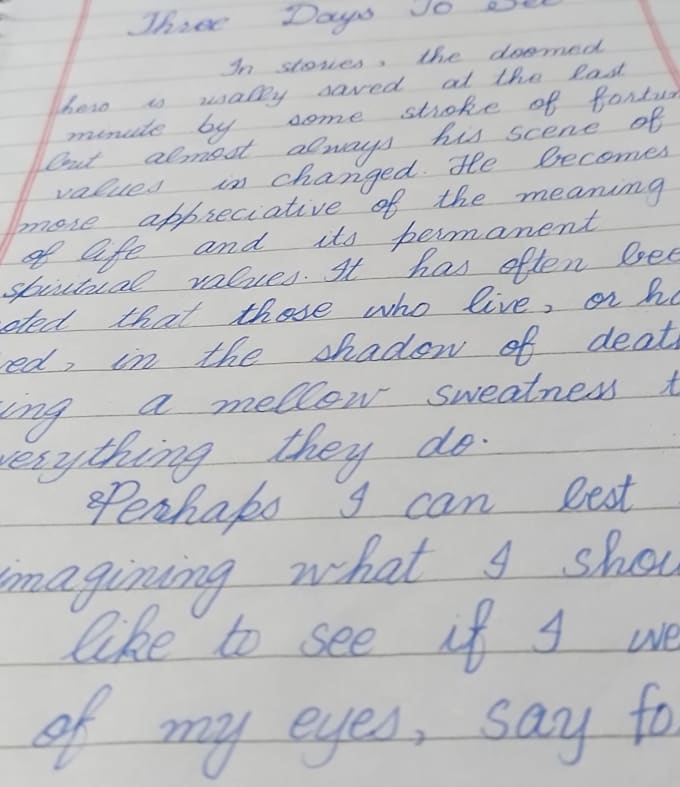 Three Days To See
In stories, the doomed
hero is usally saved at the last
minute by some stroke of fortun
but almost always his scene of
values is changed. He becomes
more appreciative of the meaning
of life and its permanent
spiritual values. It has often bee
oted that those who live, or ha
ed, in the shadow of death
ing a mellow sweatness t
verything they do.
Perhaps I can best
imagining what I shou
like to see if I we
of my eyes, say fo